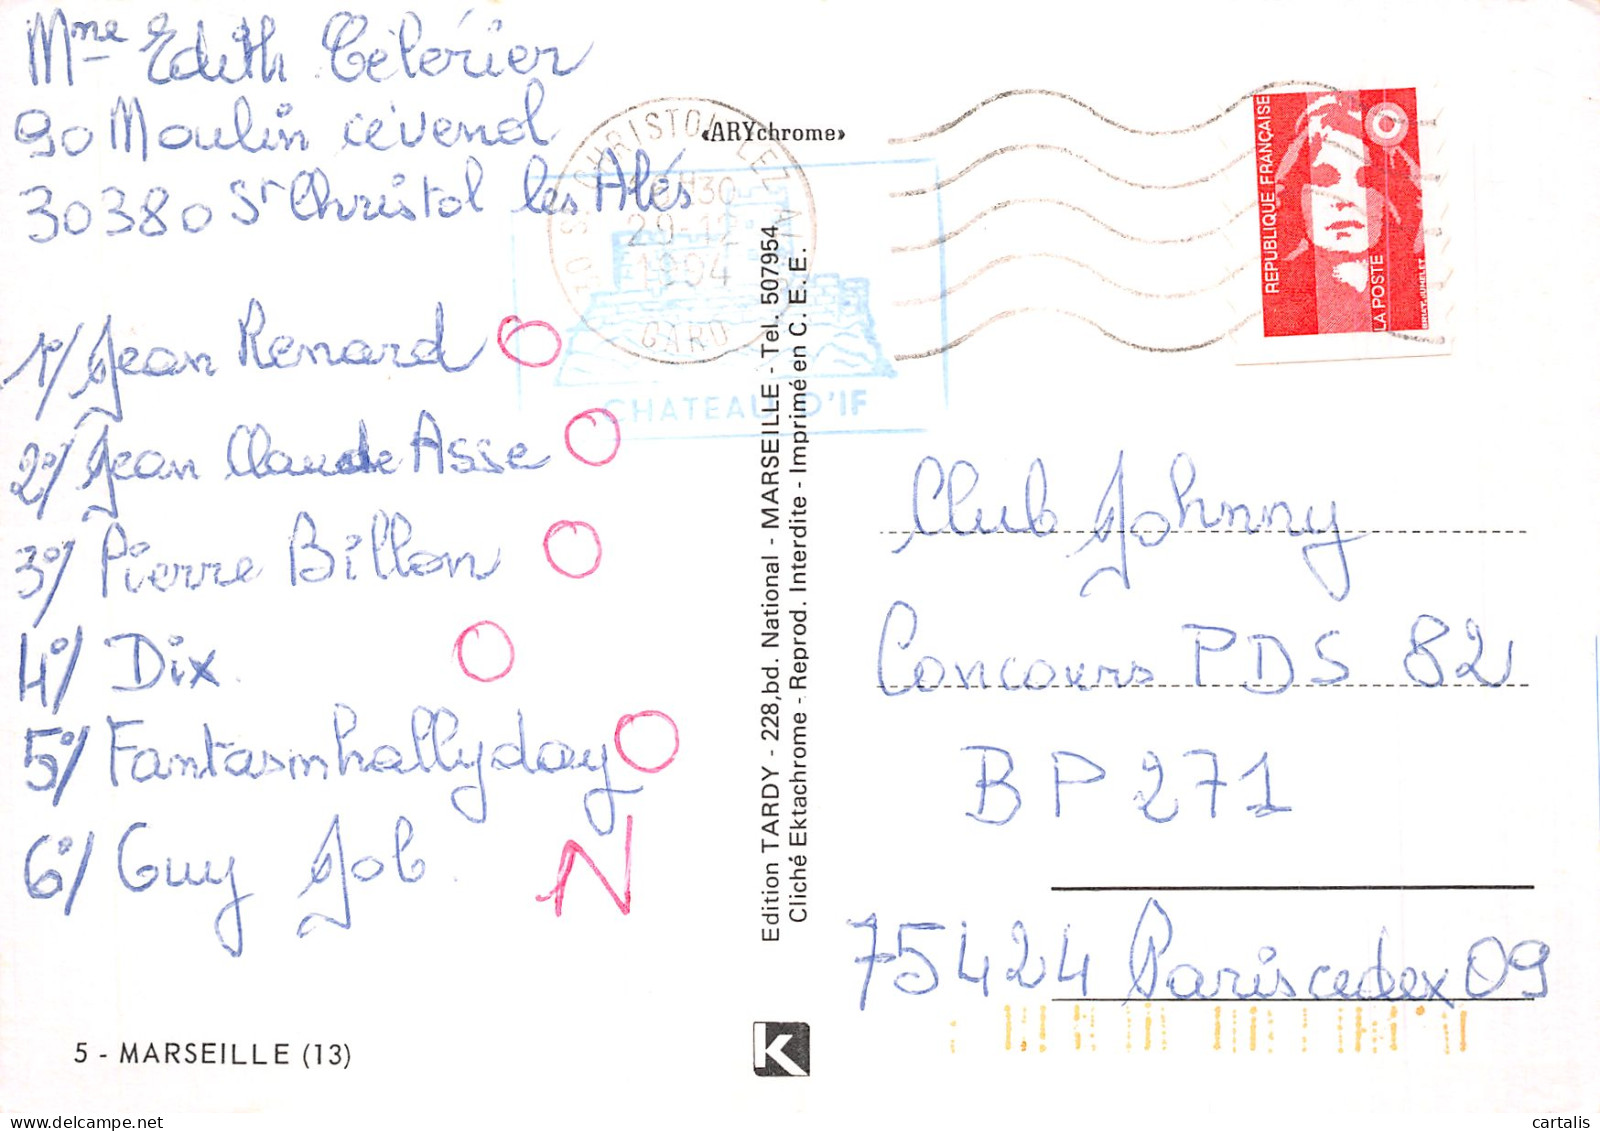 Mme Edith Célérier
90 Moulin cévenol
30380 St Christol les Alés
1°/ Jean Renard O
2°/ Jean Claude Asse O
3°/ Pierre Billon O
4°/ Dix O
5°/ Fantasmhallyday O
6°/ Guy Job N
5 - MARSEILLE (13)
«ARYchrome»
CHRISTOL LEZ
H30
1994
GARD
CHATEAU D'IF
Edition TARDY - 228, bd. National - MARSEILLE - Tel. 507954
Cliché Ektachrome - Reprod. Interdite - Imprimé en C. E. E.
K
REPUBLIQUE FRANÇAISE
LA POSTE
BRIAT. JUMELET
Club Johnny
Concours PDS 82
BP 271
75424 Paris cedex 09
cartalis